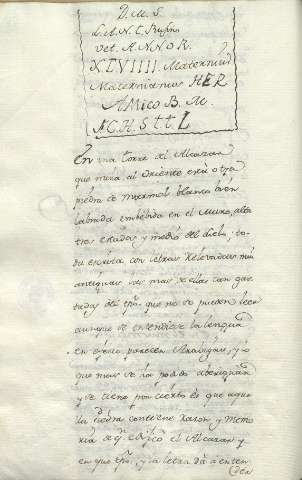 D. M. S
L. A. N. C. Rufin
Vet. A N N O R.
X L V I I I I . Maternius
Maternianus HER
Amico B. M.
H. S. t t. L
En una torre del Alcazar
que mira al Oriente está otra
piedra de marmol blanco bien
labrada embebida en el muro, alta
tres estados y medio del suelo; to
da escrita con letras relevadas mui
antiguas, las mas de ellas tan gas
tadas del tpo. que no se pueden leer
aunque se entendiese la lengua
en q.e parecen Arabigas, y lo
que mas se ha podido aberiguar
y se tiene por cierto es que aque
lla piedra contiene razon y memo
ria de q. edificó el Alcazar y
en que tpo. y la letra dá a enten
der